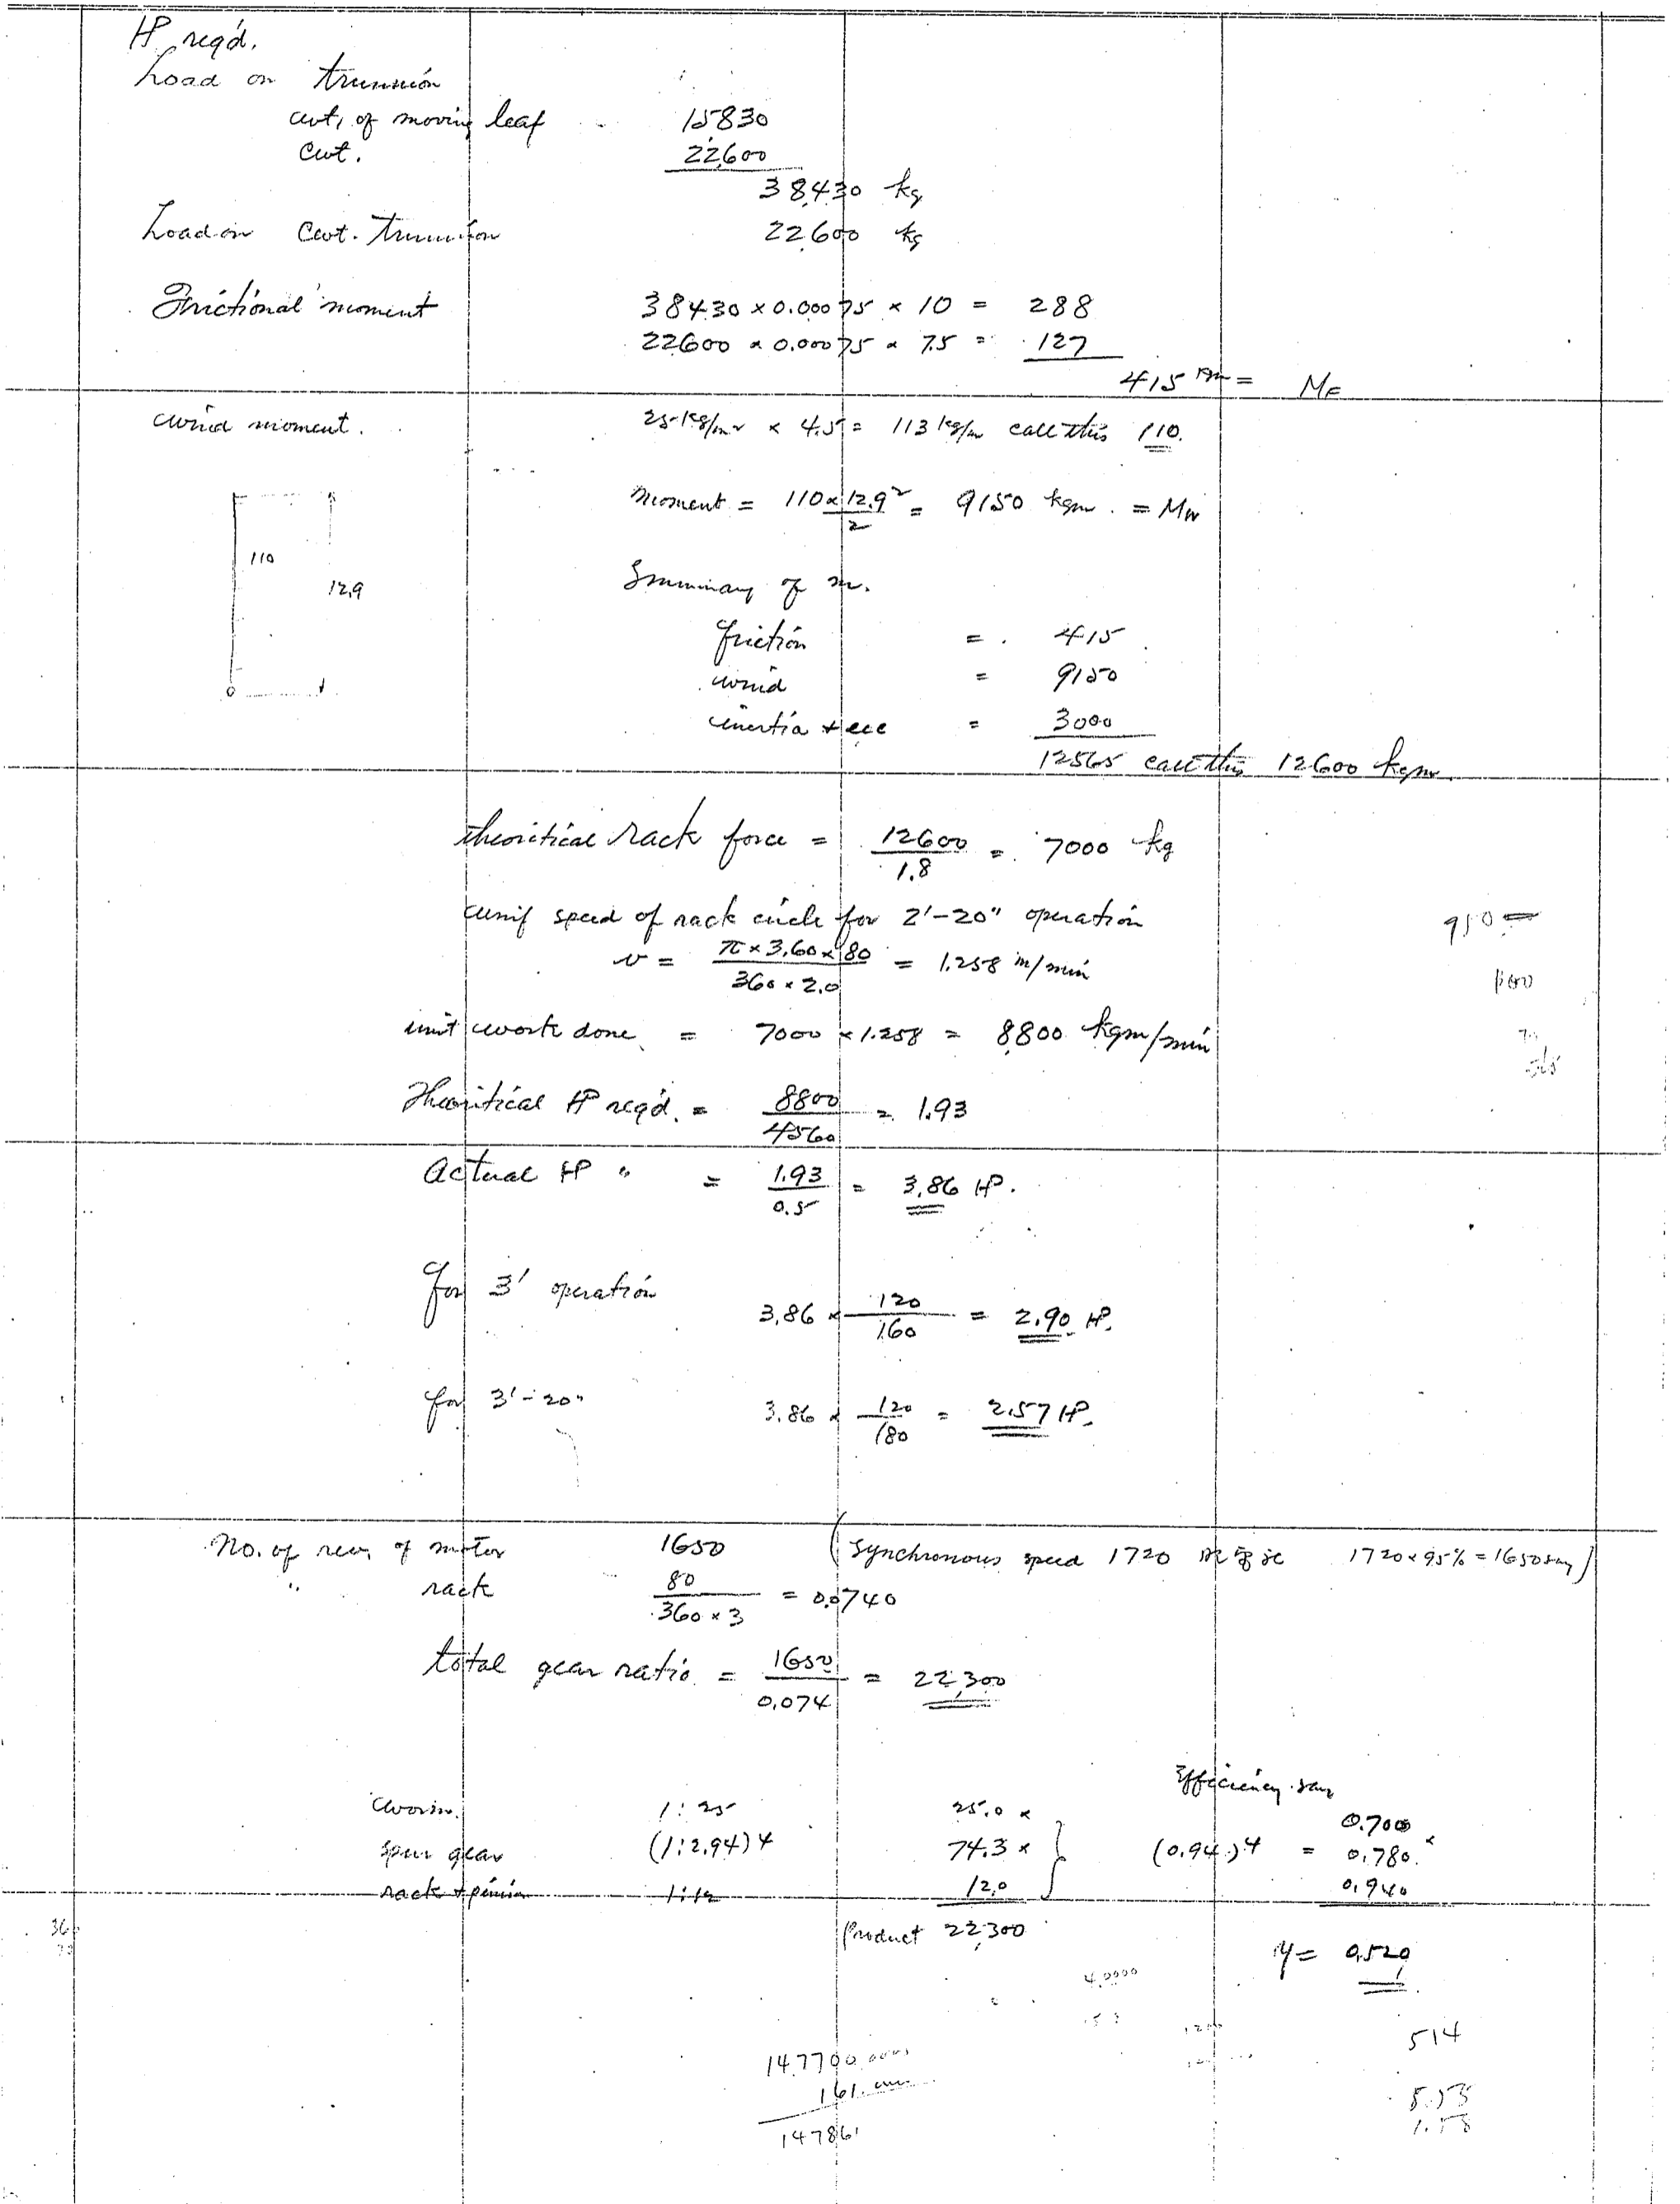 HP req'd.
Load on trunnion
wt, of moving leaf 15830
Cwt. 22,600
38,430 kg
Load on Cwt. trunnion 22,600 kg
Frictional moment 38430 × 0.00075 × 10 = 288
22600 × 0.00075 × 7.5 = 127
415 kgm = MF
wind moment. 25 kg/m² × 4.5 = 113 kg/m call this 110.
moment = 110 × 12.9² / 2 = 9150 kgm. = Mw
110
12.9
Summary of m.
friction = 415
wind = 9150
inertia + ecc = 3000
12565 call this 12600 kgm
theoritical rack force = 12600 / 1.8 = 7000 kg
unif speed of rack circle for 2'-20" operation
v = π × 3.60 × 80 / 360 × 2.0 = 1.258 m/min
unit work done = 7000 × 1.258 = 8,800 kgm/min
Theoritical HP req'd. = 8800 / 4560 = 1.93
Actual HP " = 1.93 / 0.5 = 3.86 HP.
For 3' operation
3.86 × 120 / 160 = 2.90 HP.
for 3'-20" 3.86 × 120 / 180 = 2.57 HP.
No. of rev, of motor 1650 (Synchronous speed 1720 1720 × 95% = 1650 say)
" rack 80 / 360 × 3 = 0.0740
total gear ratio = 1650 / 0.074 = 22,300
Efficiency say
Worm. 1:25 25.0 × 0.700
spur gear (1:2.94)4 74.3 × (0.94)4 = 0.780 ×
rack + pinion 1:12 12.0 0.940
Product 22,300
η = 0.520
514
147861